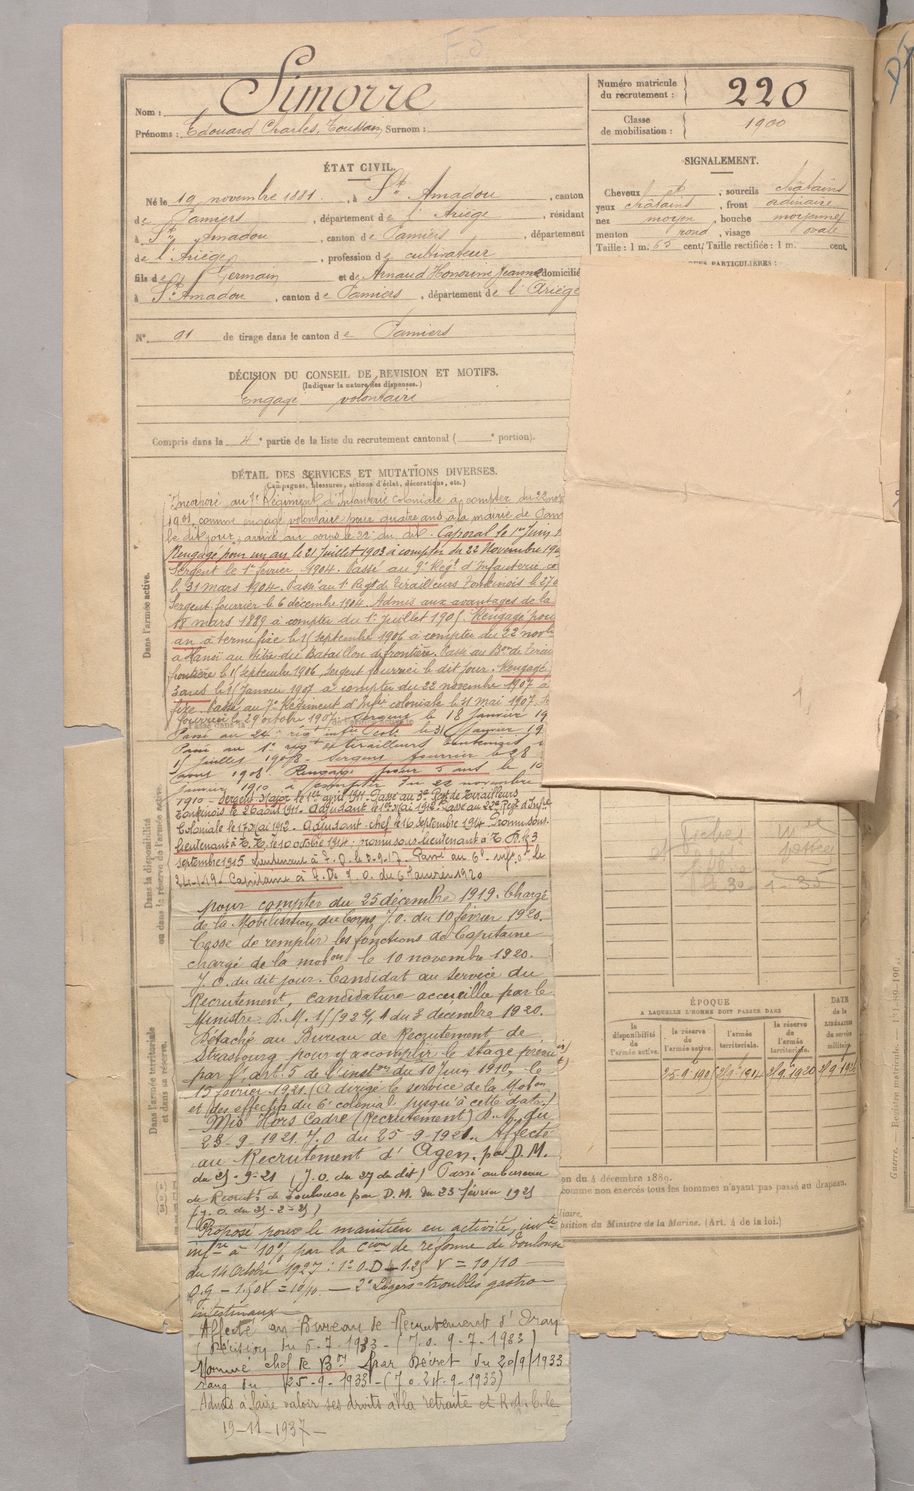 Nom : Simorre
Prénoms : Edouard Charles, Toussain, Surnom :
Numéro matricule du recrutement : 220
Classe de mobilisation : 1900
ÉTAT CIVIL.
Né le 19 novembre 1881, à St Amadou, canton
de Pamiers, département de l'Ariège, résidant
à St Amadou, canton de Pamiers, département
de l'Ariège, profession de cultivateur
fils de Germain et de Arnaud Honorine Jeanne domicilié
à St Amadou, canton de Pamiers, département de l'Ariège
SIGNALEMENT.
Cheveux et, sourcils châtains
yeux châtains, front ordinaire
nez moyen, bouche moyenne
menton rond, visage ovale
Taille : 1 m. 63 cent. Taille rectifiée : 1 m. cent.
PARTICULIÈRES :
N° 91 de tirage dans le canton de Pamiers
DÉCISION DU CONSEIL DE REVISION ET MOTIFS.
(Indiquer la nature des dispenses.)
Engagé volontaire
Compris dans la 4e partie de la liste du recrutement cantonal ( e portion).
DÉTAIL DES SERVICES ET MUTATIONS DIVERSES.
(Campagnes, blessures, actions d'éclat, décorations, etc.)
Dans l'armée active.
Incorporé au Régiment d'Infanterie Coloniale à compter du 22 nov
1901, comme engagé volontaire pour quatre ans à la mairie de Pam
le dit jour, arrivé au corps le 22 du dit. Caporal le 1er Juin
Rengagé pour un an le 21 Juillet 1903 à compter du 22 Novembre 190
Sergent le 1er février 1904. Passé au 9e Regt d'Infanterie
le 31 mars 1904. Passé au 1er Regt de Tirailleurs Tonkinois le 27
Sergent fourrier le 6 décembre 1904. Admis aux avantages de la
18 mars 1889 à compter du 1er juillet 1905. Rengagé pour
an à terme fixe le 15 septembre 1906 à compter du 22 novb
à Hanoï au titre du Bataillon de frontière. Passé au Bon de Tirail
frontière le 15 septembre 1906, Sergent fourrier le dit jour. Rengagé
3 ans le 15 Janvier 1907 à compter du 22 novembre 1907 à
fixe. Passé au 7e Régiment d'Infie coloniale le 31 mai 1907. S
fourrier le 29 octobre 1907. Sergent le 18 Janvier 19
Passé au 24e régt infie Colle le 31 Janvier 19
Passé au 1er régt de tirailleurs tonkinois
15 juillet 1908. Sergent fourrier le 28
août 1908. Rengagé pour 3 ans le 10
janvier 1910 à compter du 22 novembre
1910 - Sergent-Major le 1er avril 1911. Passé au 3e Regt de Tirailleurs
Tonkinois le 26 août 1911. Adjudant le 1er Mai 1912. Passé au 22e Regt d'Infie
Coloniale le 17 Mai 1912. Adjudant-chef le 16 septembre 1914. Promu sous-
lieutenant à T. T. le 10 octobre 1914 ; promu sous-lieutenant à T. D. le 3
septembre 1915. Lieutenant à T. D. le 2-9-17. Passé au 6e infie cle le
24-1-19. Capitaine à T. D. J. O. du 6 janvier 1920
pour compter du 25 décembre 1919. Chargé
de la Mobilisation du Corps J.O. du 10 février 1920.
Cesse de remplir les fonctions de Capitaine
chargé de la mobon le 10 novembre 1920.
J. O. du dit jour. Candidat au service du
Recrutement, candidature accueillie par le
Ministre. D.M. du 3 decembre 1920.
Détaché au Bureau de Recrutement de
Strasbourg pour y accomplir le stage prévu
par l'art. 5 de l'inston du 10 Juin 1910, le
15 février 1921. (A dirigé le service de la Mobon
et des effectifs du 6e colonial jusqu'à cette date)
Mis Hors Cadre (Recrutement) D.M. du
23-9-1921. J.O. du 25-9-1921. Affecté
au Recrutement d'Agen, par D.M.
du 25-9-21 (J.O. du 27 du dit) Passé au bureau
de Recrutt de Toulouse par D.M. du 23 février 1925
(J.O. du 25-2-25)
Proposé pour le maintien en activité, invté
infre à 10% par la Cion de réforme de Toulouse
du 14 Octobre 1927 : 1° O.D - 1.25 V = 10/10
O.G = 1.50 V = 10/10 — 2° Légers troubles gastro-
intestinaux
Affecté au Bureau de Recrutement d'Oran
(Décision du 5-7-1933 - (J.O. 9-7-1933)
Nommé chef de Bon par Décret du 20/9/1933
rang du 25-9-1933 - (J.O. 24-9-1933)
Admis à faire valoir ses droits à la retraite
19-11-1937 -
Dans la disponibilité
ou dans la réserve de l'armée active.
Dans l'armée territoriale
et dans sa réserve.
30-1-35
ÉPOQUE
A LAQUELLE L'HOMME DOIT PASSER DANS
la disponibilité de l'armée active.
la réserve de l'armée active.
l'armée territoriale.
la réserve de l'armée territoriale.
DATE de la LIBÉRATION du service militaire.
on du 4 décembre 1889.
comme non exercés tous les hommes n'ayant pas passé au drapeau.
position du Ministre de la Marine. (Art. 4 de la loi.)